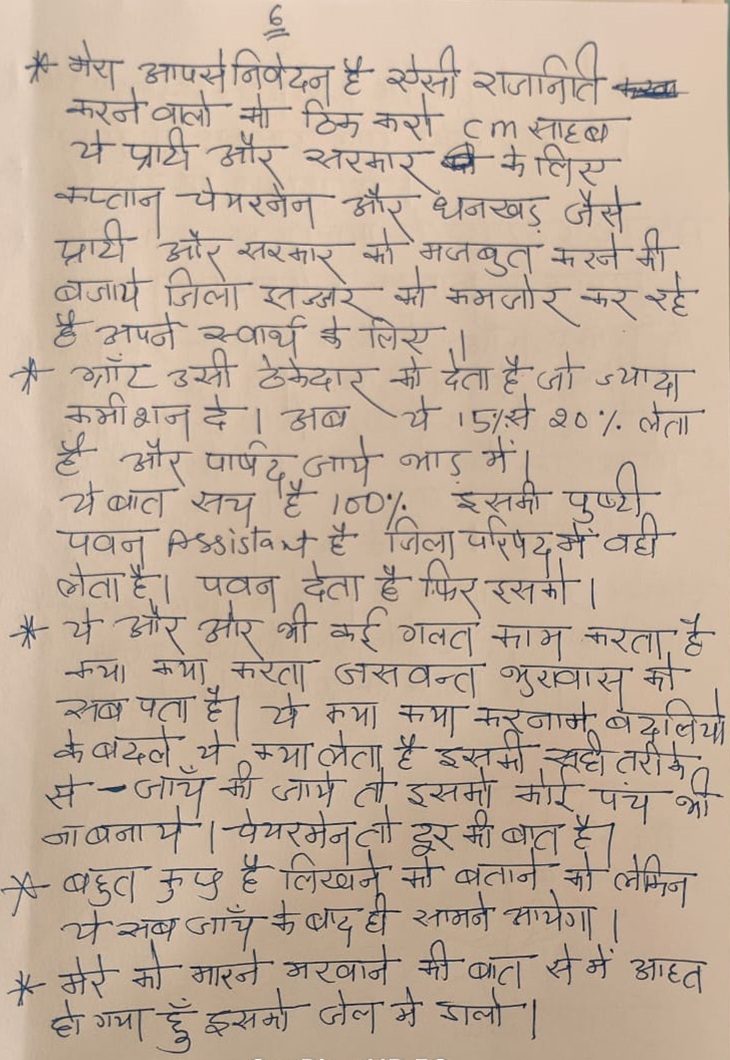 6
* मेरा आपसे निवेदन है ऐसी राजनिति
करने वालो को ठिक करो cm साहब
ये प्रार्टी और सरकार के लिए
कप्तान चेयरमेन और धनखड़ जैसे
प्रार्टी और सरकार को मजबुत करने की
बजाये जिला झज्जर को कमजोर कर रहे
है अपने स्वार्थ के लिए।
* ग्राँट उसी ठेकेदार को देता है जो ज्यादा
कमीशन दे। अब ये 15% से 20% लेता
है और पार्षद जाये भाड़ में।
ये बात सच है 100% इसकी पुष्टी
पवन Assistant है जिला परिषद में वही
लेता है। पवन देता है फिर इसको।
* ये और और भी कई गलत काम करता है
क्या क्या करता जसवन्त भुरावास को
सब पता है। ये क्या क्या करनामे बदलियो
के बदले ये क्या लेता है इसकी सही तरीके
से - जाँच की जाये तो इसको कोई पंच भी
ना बनाये। चेयरमेन तो दूर की बात है।
* बहुत कुछ है लिखने को बताने को लेकिन
ये सब जाँच के बाद ही सामने आयेगा।
* मेरे को मारने मरवाने की बात से में आहत
हो गया हूँ इसको जेल मे डालो।